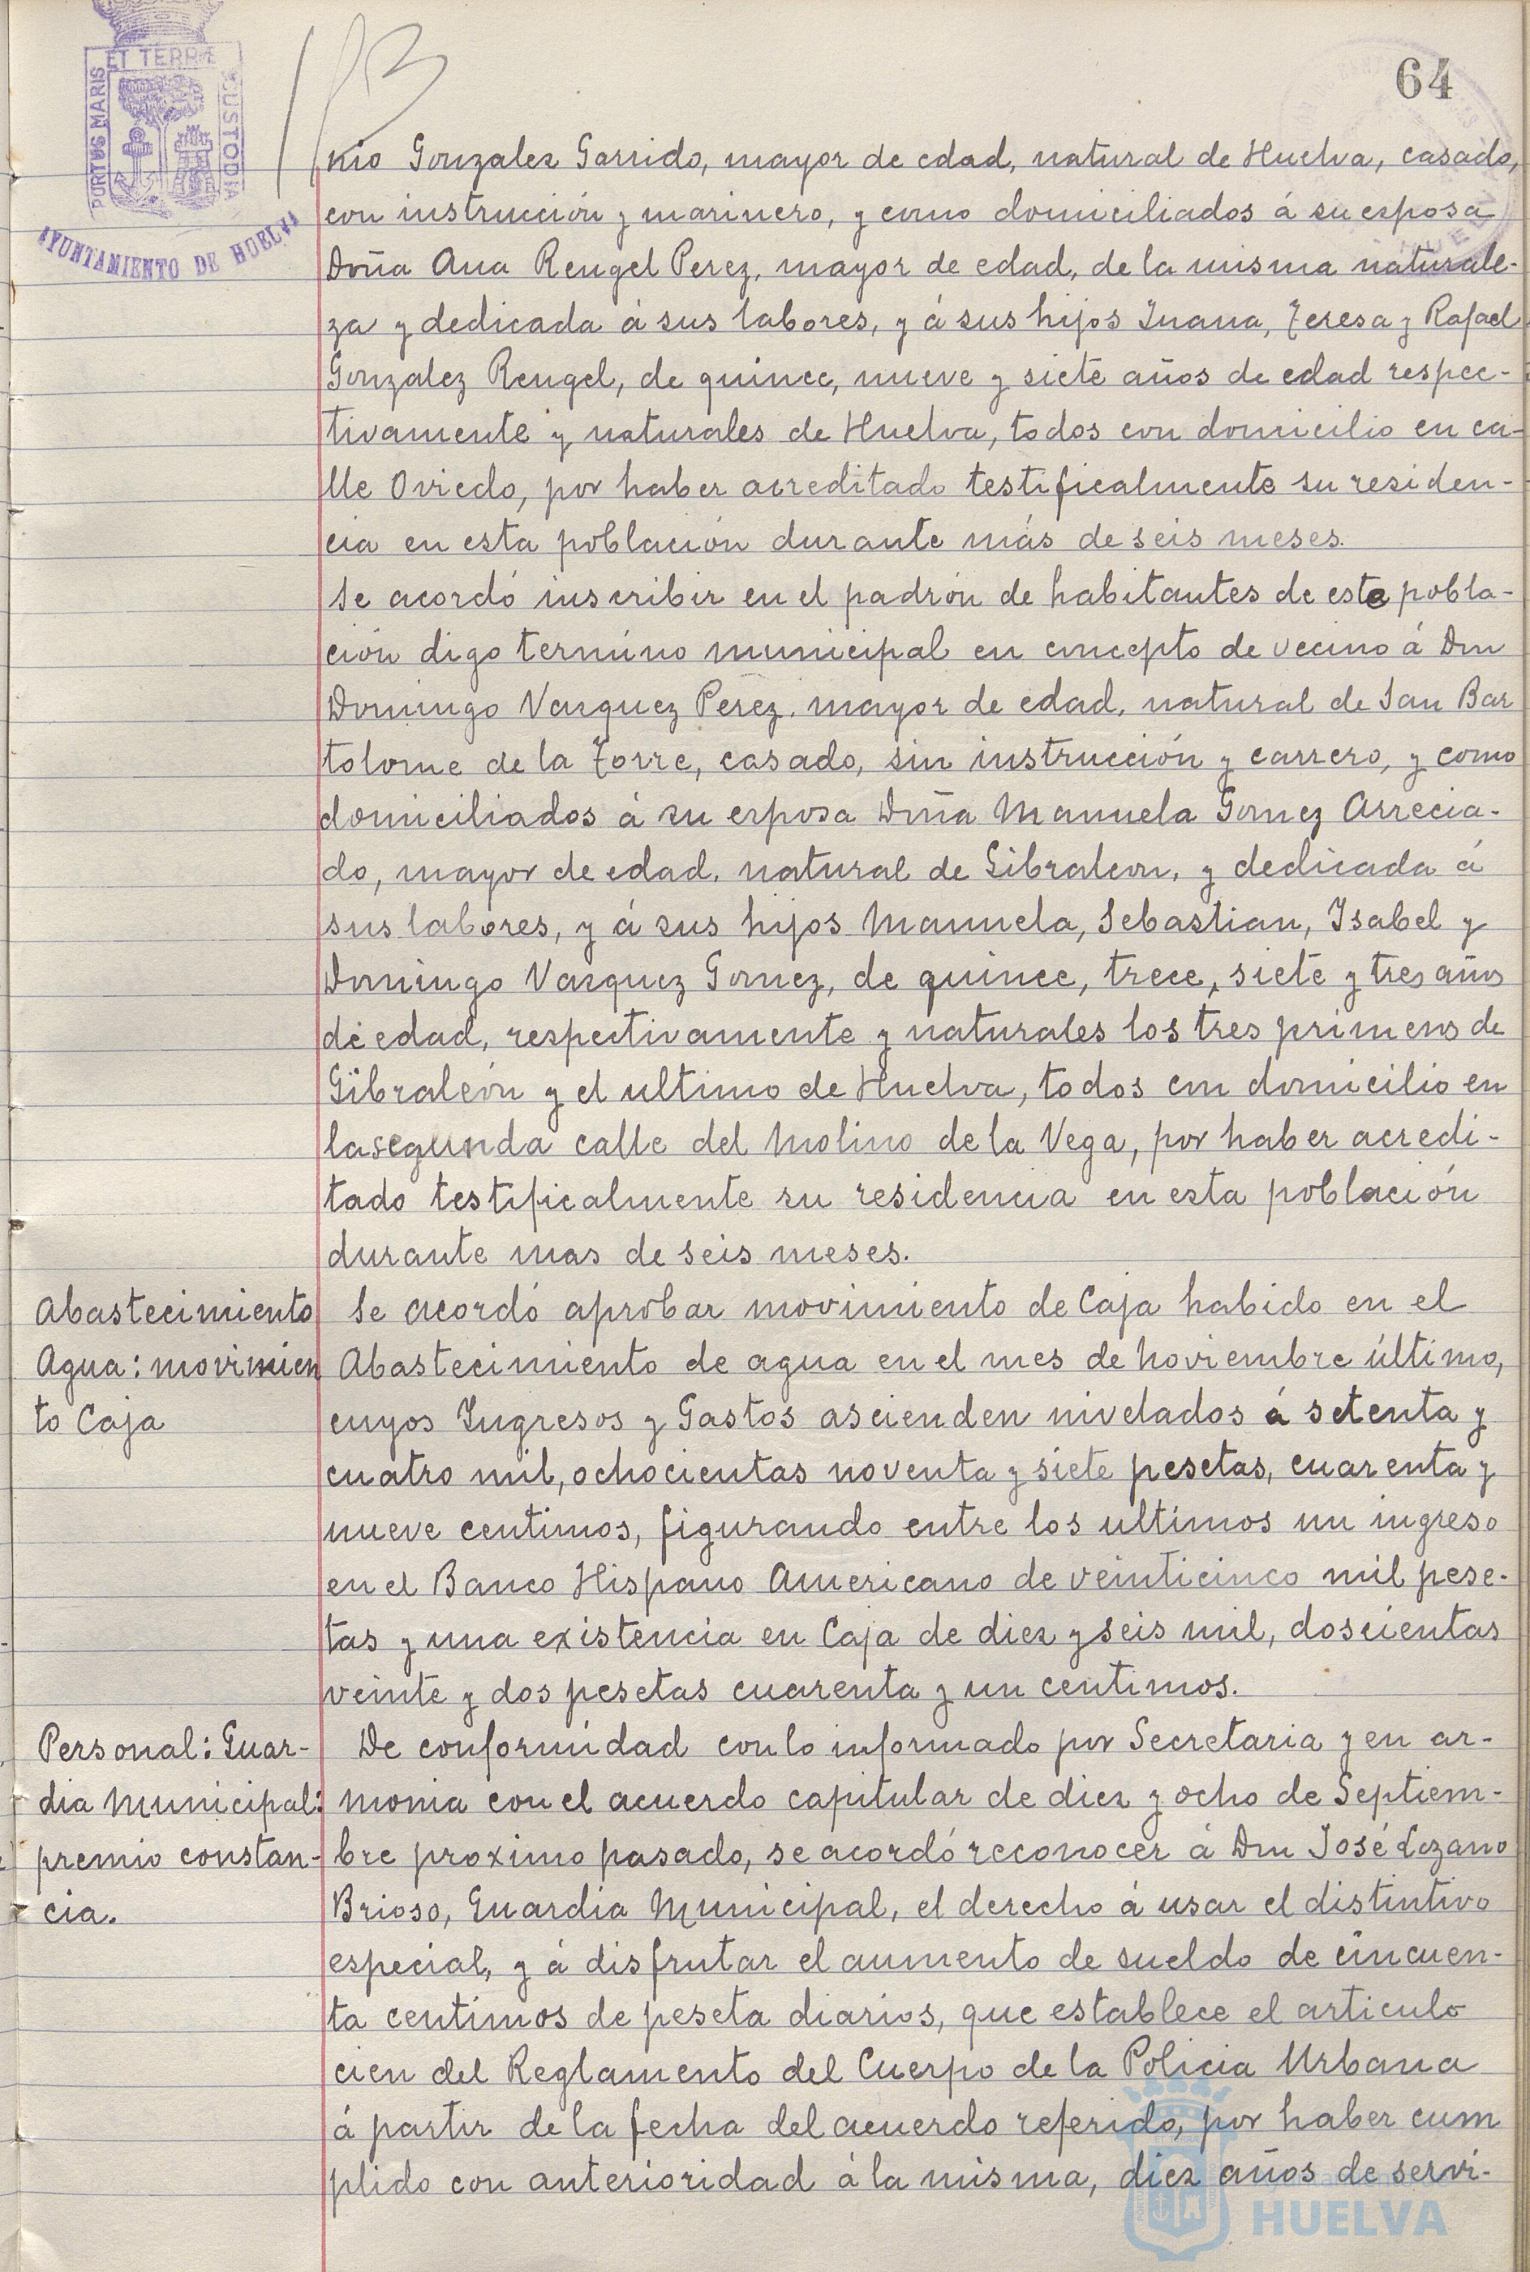 64
ET TERRÆ
PORTUS MARIS
CUSTODIA
AYUNTAMIENTO DE HUELVA
nio Gonzalez Garrido, mayor de edad, natural de Huelva, casado,
con instrucción y marinero, y como domiciliados á su esposa
Doña Ana Rengel Perez, mayor de edad, de la misma naturale-
za y dedicada á sus labores, y á sus hijos Juana, Teresa y Rafael
Gonzalez Rengel, de quince, nueve y siete años de edad respec-
tivamente y naturales de Huelva, todos con domicilio en ca-
lle Oviedo, por haber acreditado testificalmente su residen-
cia en esta población durante más de seis meses.
Se acordó inscribir en el padrón de habitantes de este pobla-
ción digo término municipal en concepto de vecino á Don
Domingo Vazquez Perez, mayor de edad, natural de San Bar
tolome de la Torre, casado, sin instrucción y carrero, y como
domiciliados á su esposa Doña Manuela Gomez Arrecia-
do, mayor de edad, natural de Gibraleon, y dedicada á
sus labores, y á sus hijos Manuela, Sebastian, Isabel y
Domingo Vazquez Gomez, de quince, trece, siete y tres años
de edad, respectivamente y naturales los tres primeros de
Gibraleón y el ultimo de Huelva, todos con domicilio en
la segunda calle del Molino de la Vega, por haber acredi-
tado testificalmente su residencia en esta población
durante mas de seis meses.
Abastecimiento
Agua: movimien
to Caja
Se acordó aprobar movimiento de Caja habido en el
Abastecimiento de agua en el mes de Noviembre último,
cuyos Ingresos y Gastos ascienden nivelados á setenta y
cuatro mil, ochocientas noventa y siete pesetas, cuarenta y
nueve centimos, figurando entre los ultimos un ingreso
en el Banco Hispano Americano de veinticinco mil pese-
tas y una existencia en Caja de diez y seis mil, doscientas
veinte y dos pesetas cuarenta y un centimos.
Personal: Guar-
dia Municipal:
premio constan-
cia.
De conformidad con lo informado por Secretaria y en ar-
monia con el acuerdo capitular de diez y ocho de Septiem-
bre proximo pasado, se acordó reconocer á Don José Lozano
Brioso, Guardia Municipal, el derecho á usar el distintivo
especial, y á disfrutar el aumento de sueldo de cincuen-
ta centimos de peseta diarios, que establece el articulo
cien del Reglamento del Cuerpo de la Policia Urbana
á partir de la fecha del acuerdo referido, por haber cum
plido con anterioridad á la misma, diez años de servi-
HUELVA